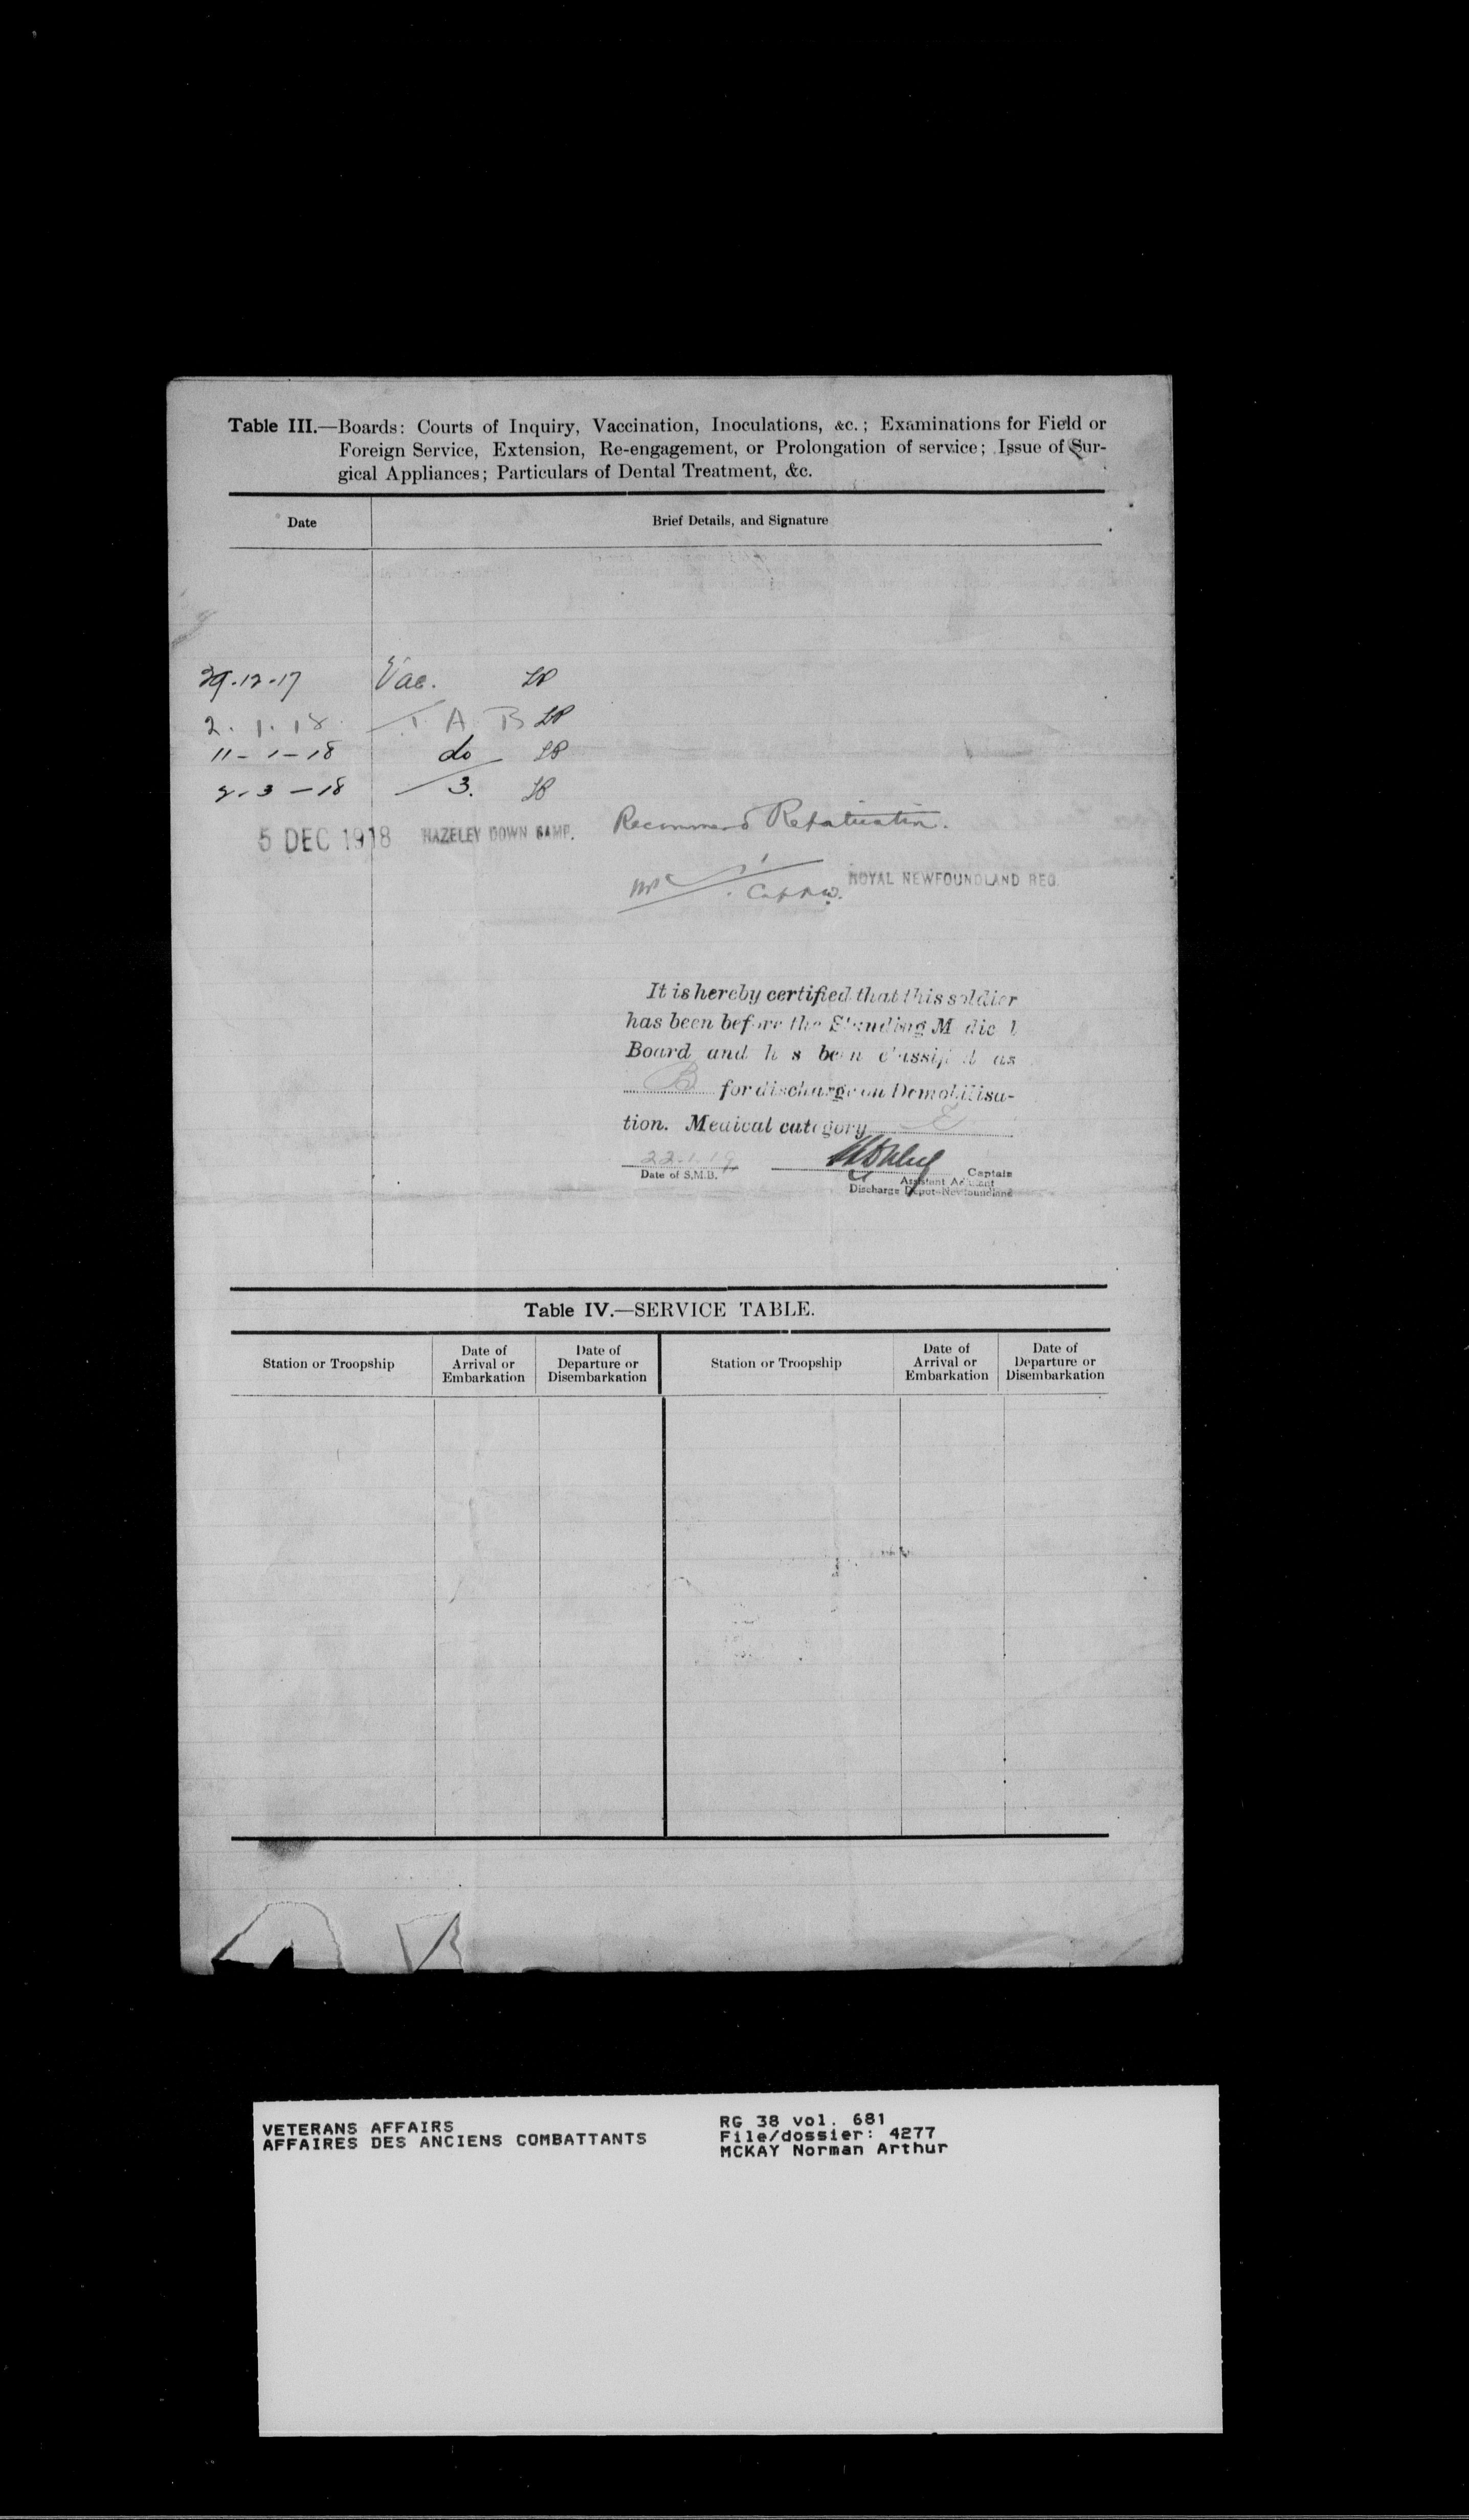 Table III.—Boards: Courts of Inquiry, Vaccination, Inoculations, &c.; Examinations for Field or
Foreign Service, Extension, Re-engagement, or Prolongation of service; Issue of Sur-
gical Appliances; Particulars of Dental Treatment, &c.
Date Brief Details, and Signature
29.12.17 Vac.
2.1.18 T A B
11-1-18 do
3-18 3.
5 DEC 1918 HAZELEY DOWN CAMP. Recommend Repatriation.
ROYAL NEWFOUNDLAND REG.
It is hereby certified that this soldier
has been before the Standing Medical
Board and has been classified as
B for discharge on Demobilisa-
tion. Medical category E
22.1.19
Date of S.M.B. Captain
Assistant Adjutant
Discharge Depot-Newfoundland
Table IV.—SERVICE TABLE.
Station or Troopship Date of Arrival or Embarkation Date of Departure or Disembarkation Station or Troopship Date of Arrival or Embarkation Date of Departure or Disembarkation
VETERANS AFFAIRS RG 38 vol. 681
AFFAIRES DES ANCIENS COMBATTANTS File/dossier: 4277
MCKAY Norman Arthur